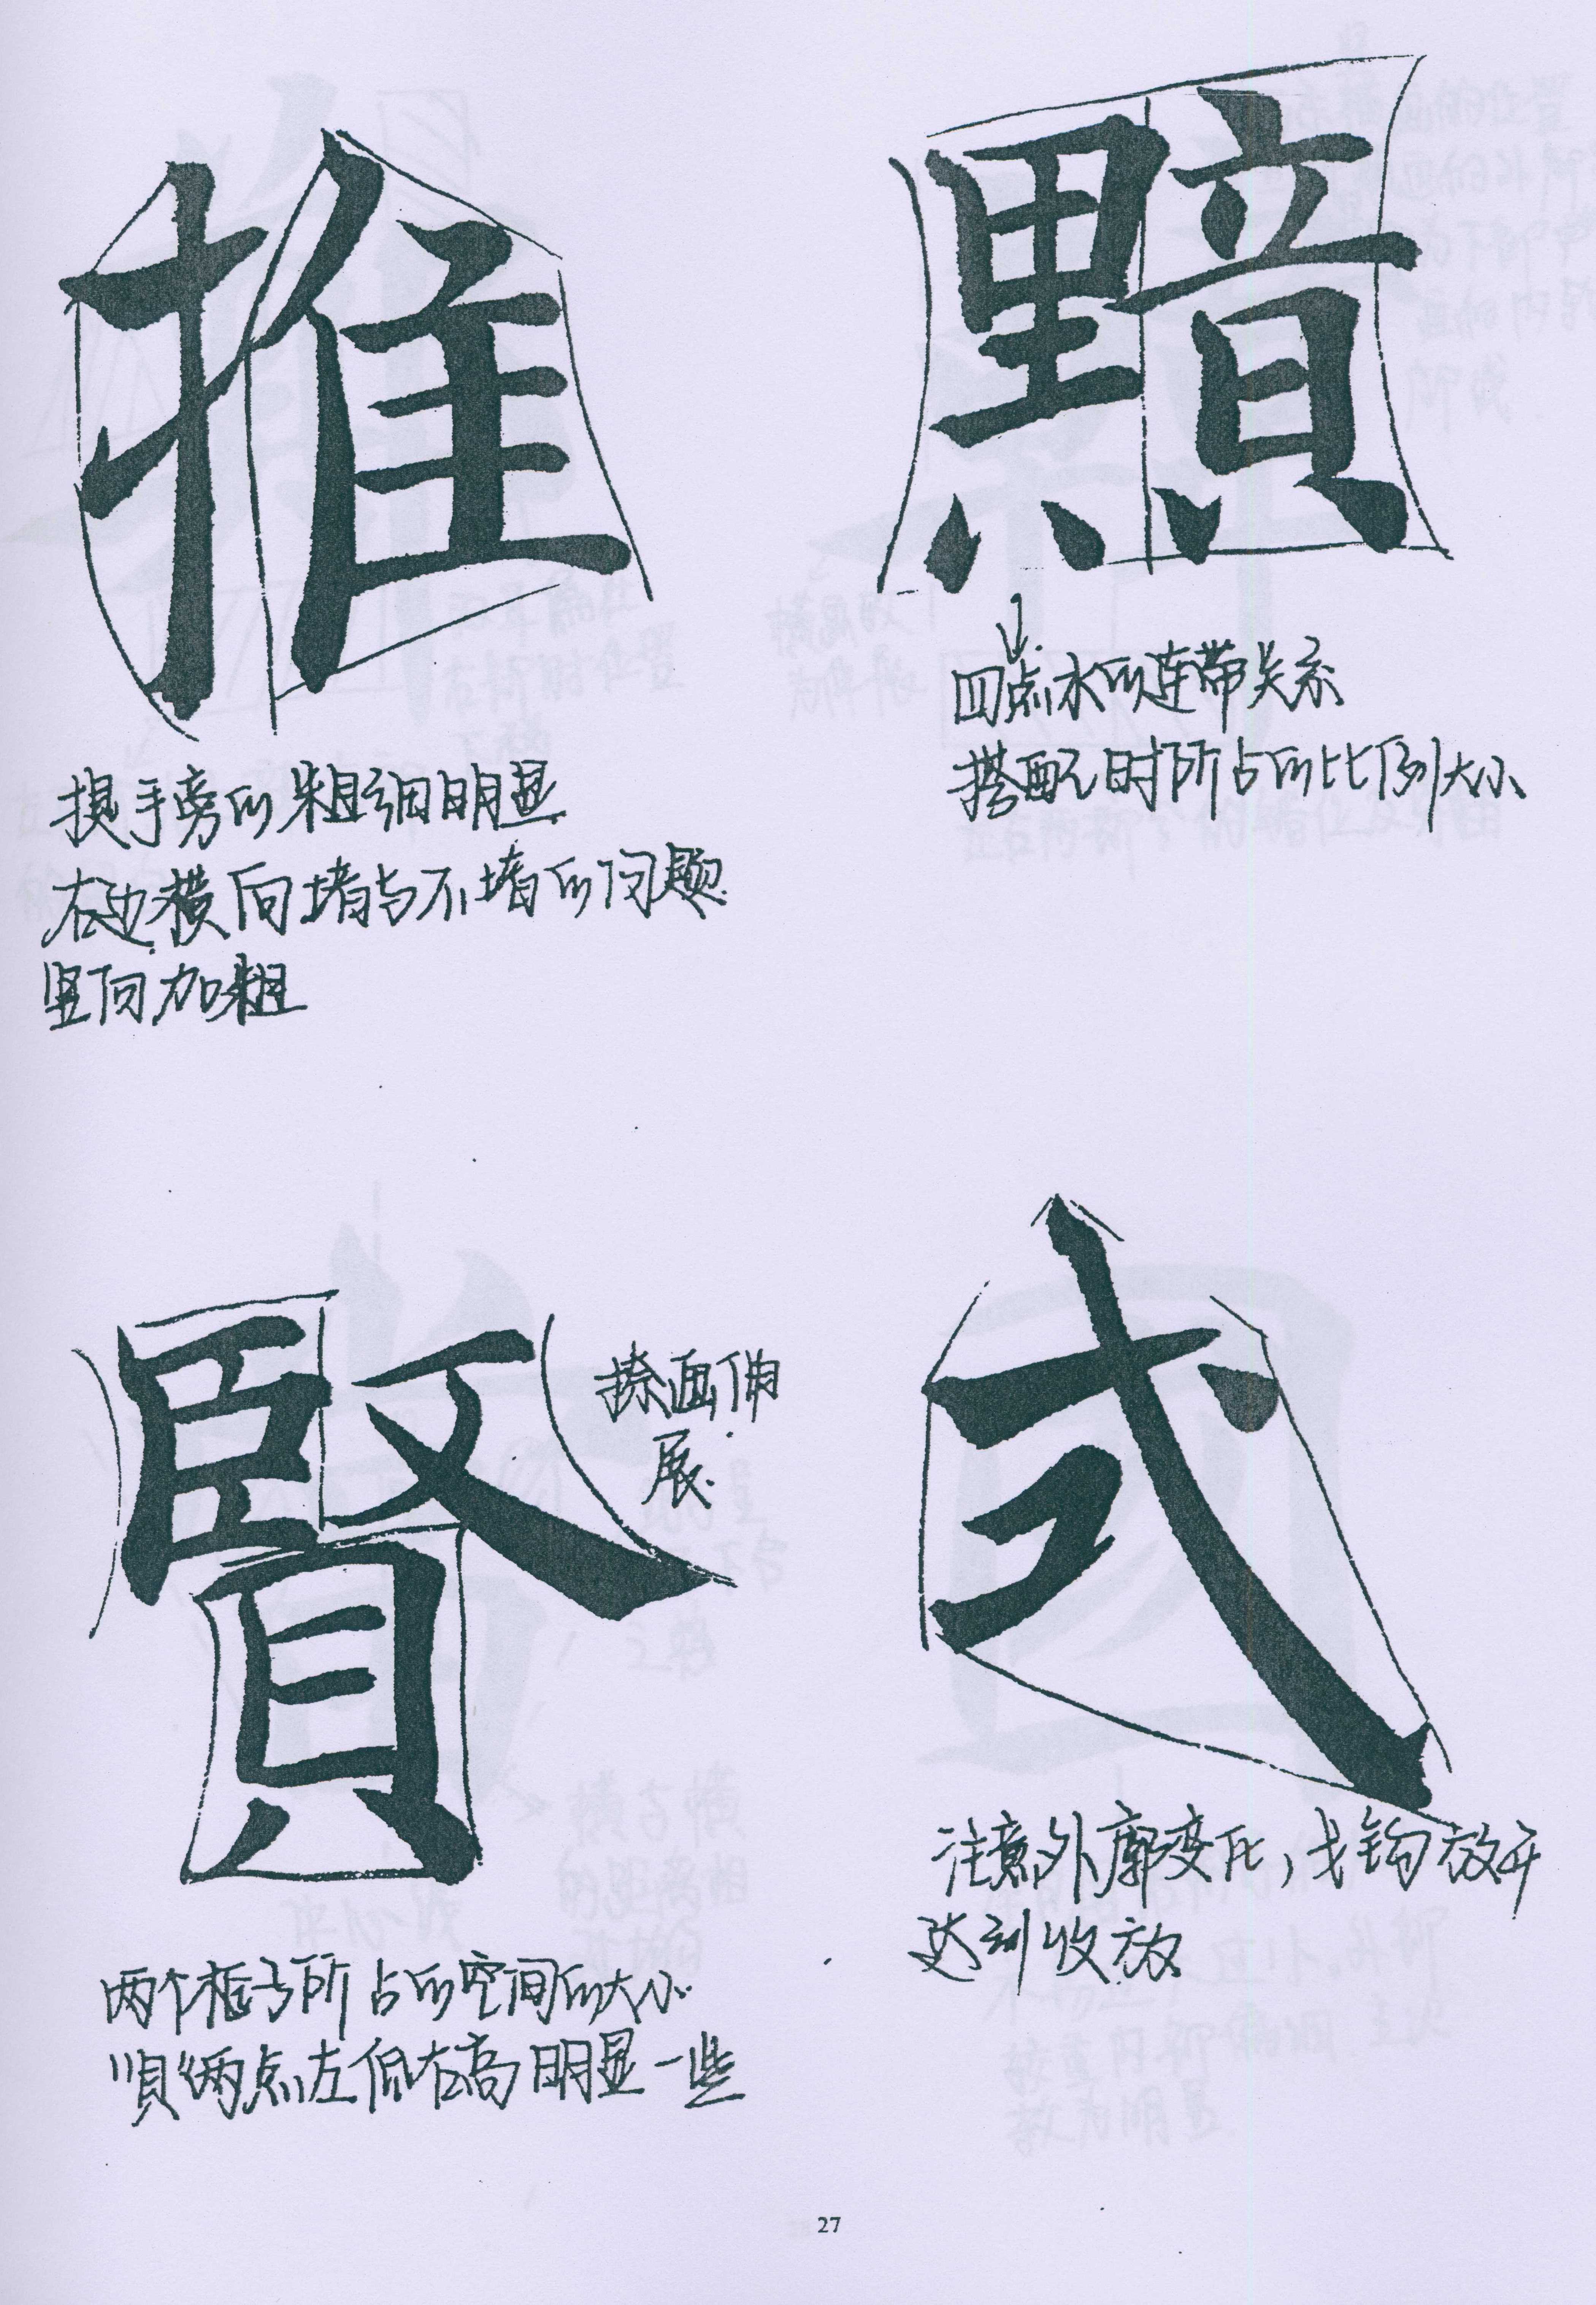 推
提手旁的粗细明显
右边横向堵与不堵的问题
竖向加粗
黯
四点水的连带关系
搭配时所占的比例大小
賢
捺画伸
展.
两个框子所占的空间的大小.
"贝"两点左低右高明显一些
式
注意外廓变化，戈钩放开
达到收放
27